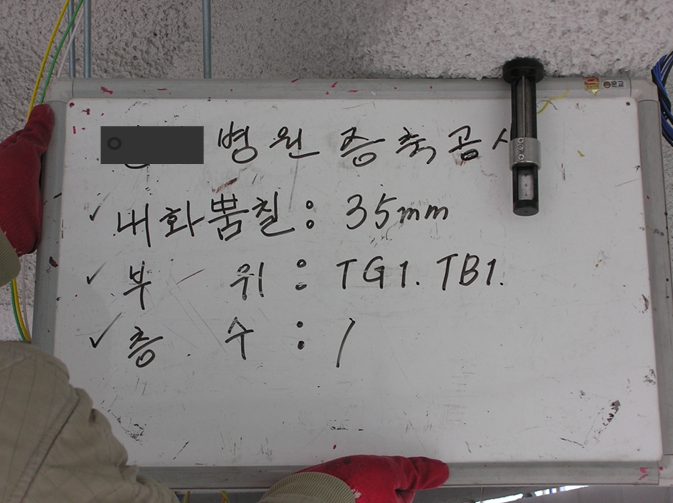 병원 증축공사
✓ 내화뿜칠: 35mm
✓ 부 위: TG1. TB1.
✓ 층 수: 1